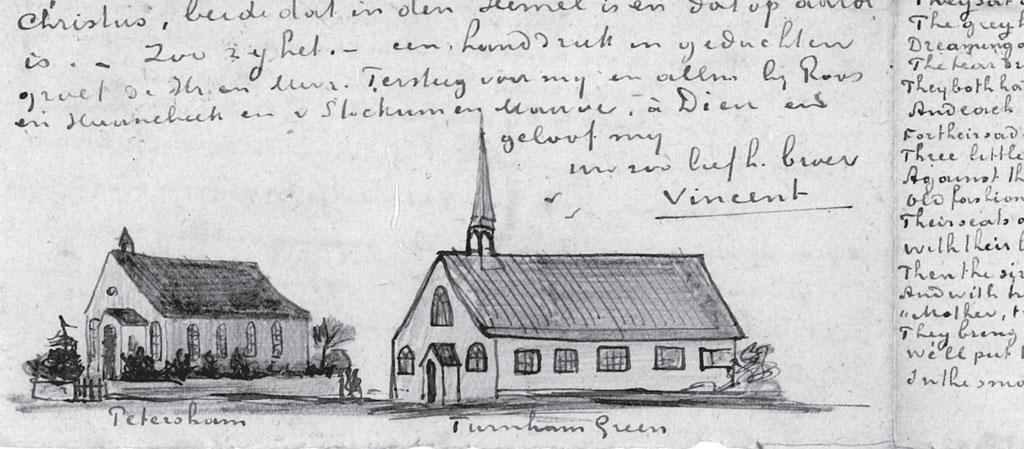 Christus, beide dat in den Hemel is en dat op aarde
is. – Zoo zy het. – een handdruk in gedachten
groet de Hr. en Mevr. Tersteeg voor my en allen by Roos
en Haanebeek en v Stockum en Mauve. à Dieu en
geloof my
uw zoo liefh. broer
Vincent
Petersham
Turnham Green
They sat
The grey
Dreaming o
The tear dr
They both ha
And each
For their sad
Three little
Against th
Old fashion
Their seats o
With their
Then the si
And with tr
"Mother, t
They bring
We'll put
In the smo